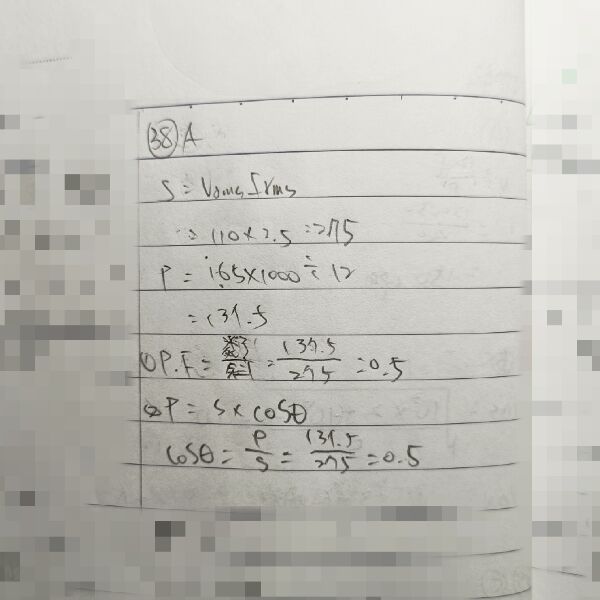 ㊳ A
S = Vrms Irms
= 110 × 2.5 = 275
P = 1.65×1000 ÷ 12
= 137.5
① P.F = = 137.5/275 = 0.5
② P = S × cosθ
cosθ = P/S = 137.5/275 = 0.5